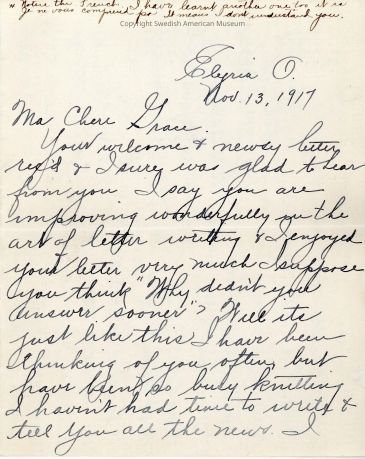 * Notice the French. I have learnt another one too it is
Je ne vous comprend pas It means I don't understand you.
Copyright Swedish American Museum
Elyria O.
Nov. 13, 1917
Ma Chere Grace.
Your welcome & newsy letter
rec'd & I sure was glad to hear
from you I say you are
improving wonderfully in the
art of letter writing & I enjoyed
your letter very much Suppose
you think "Why didn't you
answer sooner"? Well its
just like this I have been
thinking of you often, but
have been so busy knitting
I haven't had time to write &
tell you all the news. I